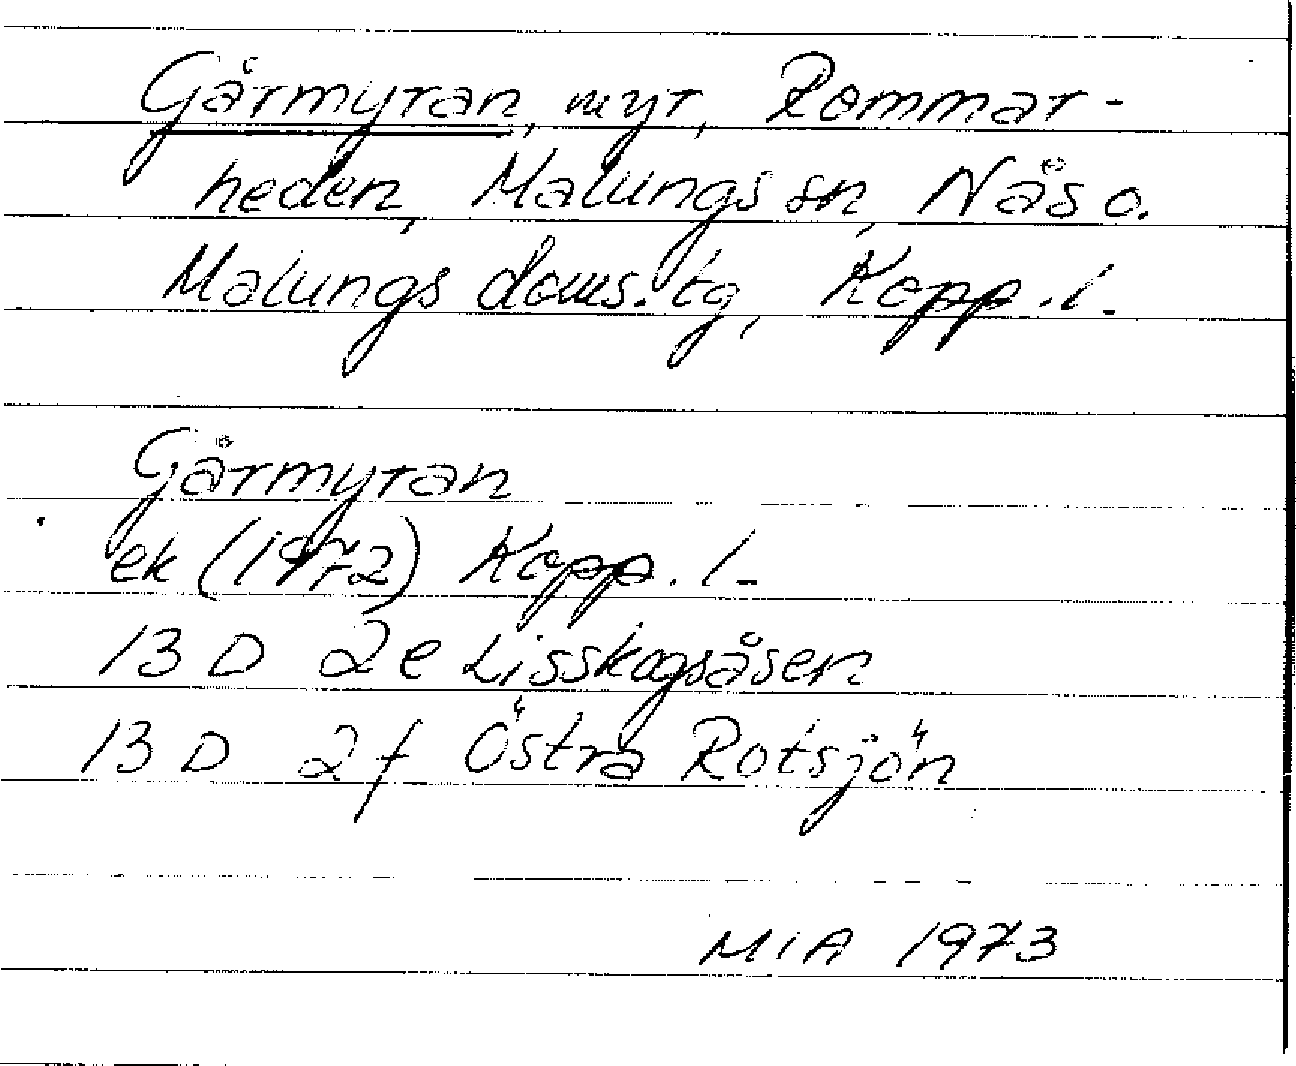 Gårmyran, myr, Rommar-
heden, Malungs sn, Nås o.
Malungs doms. tg, Kopp. l.
Gårmyran
ek (1972) Kopp. l.
13 D 2e Lisskogsåsen
13 D 2f Östra Rotsjön
MIA 1973